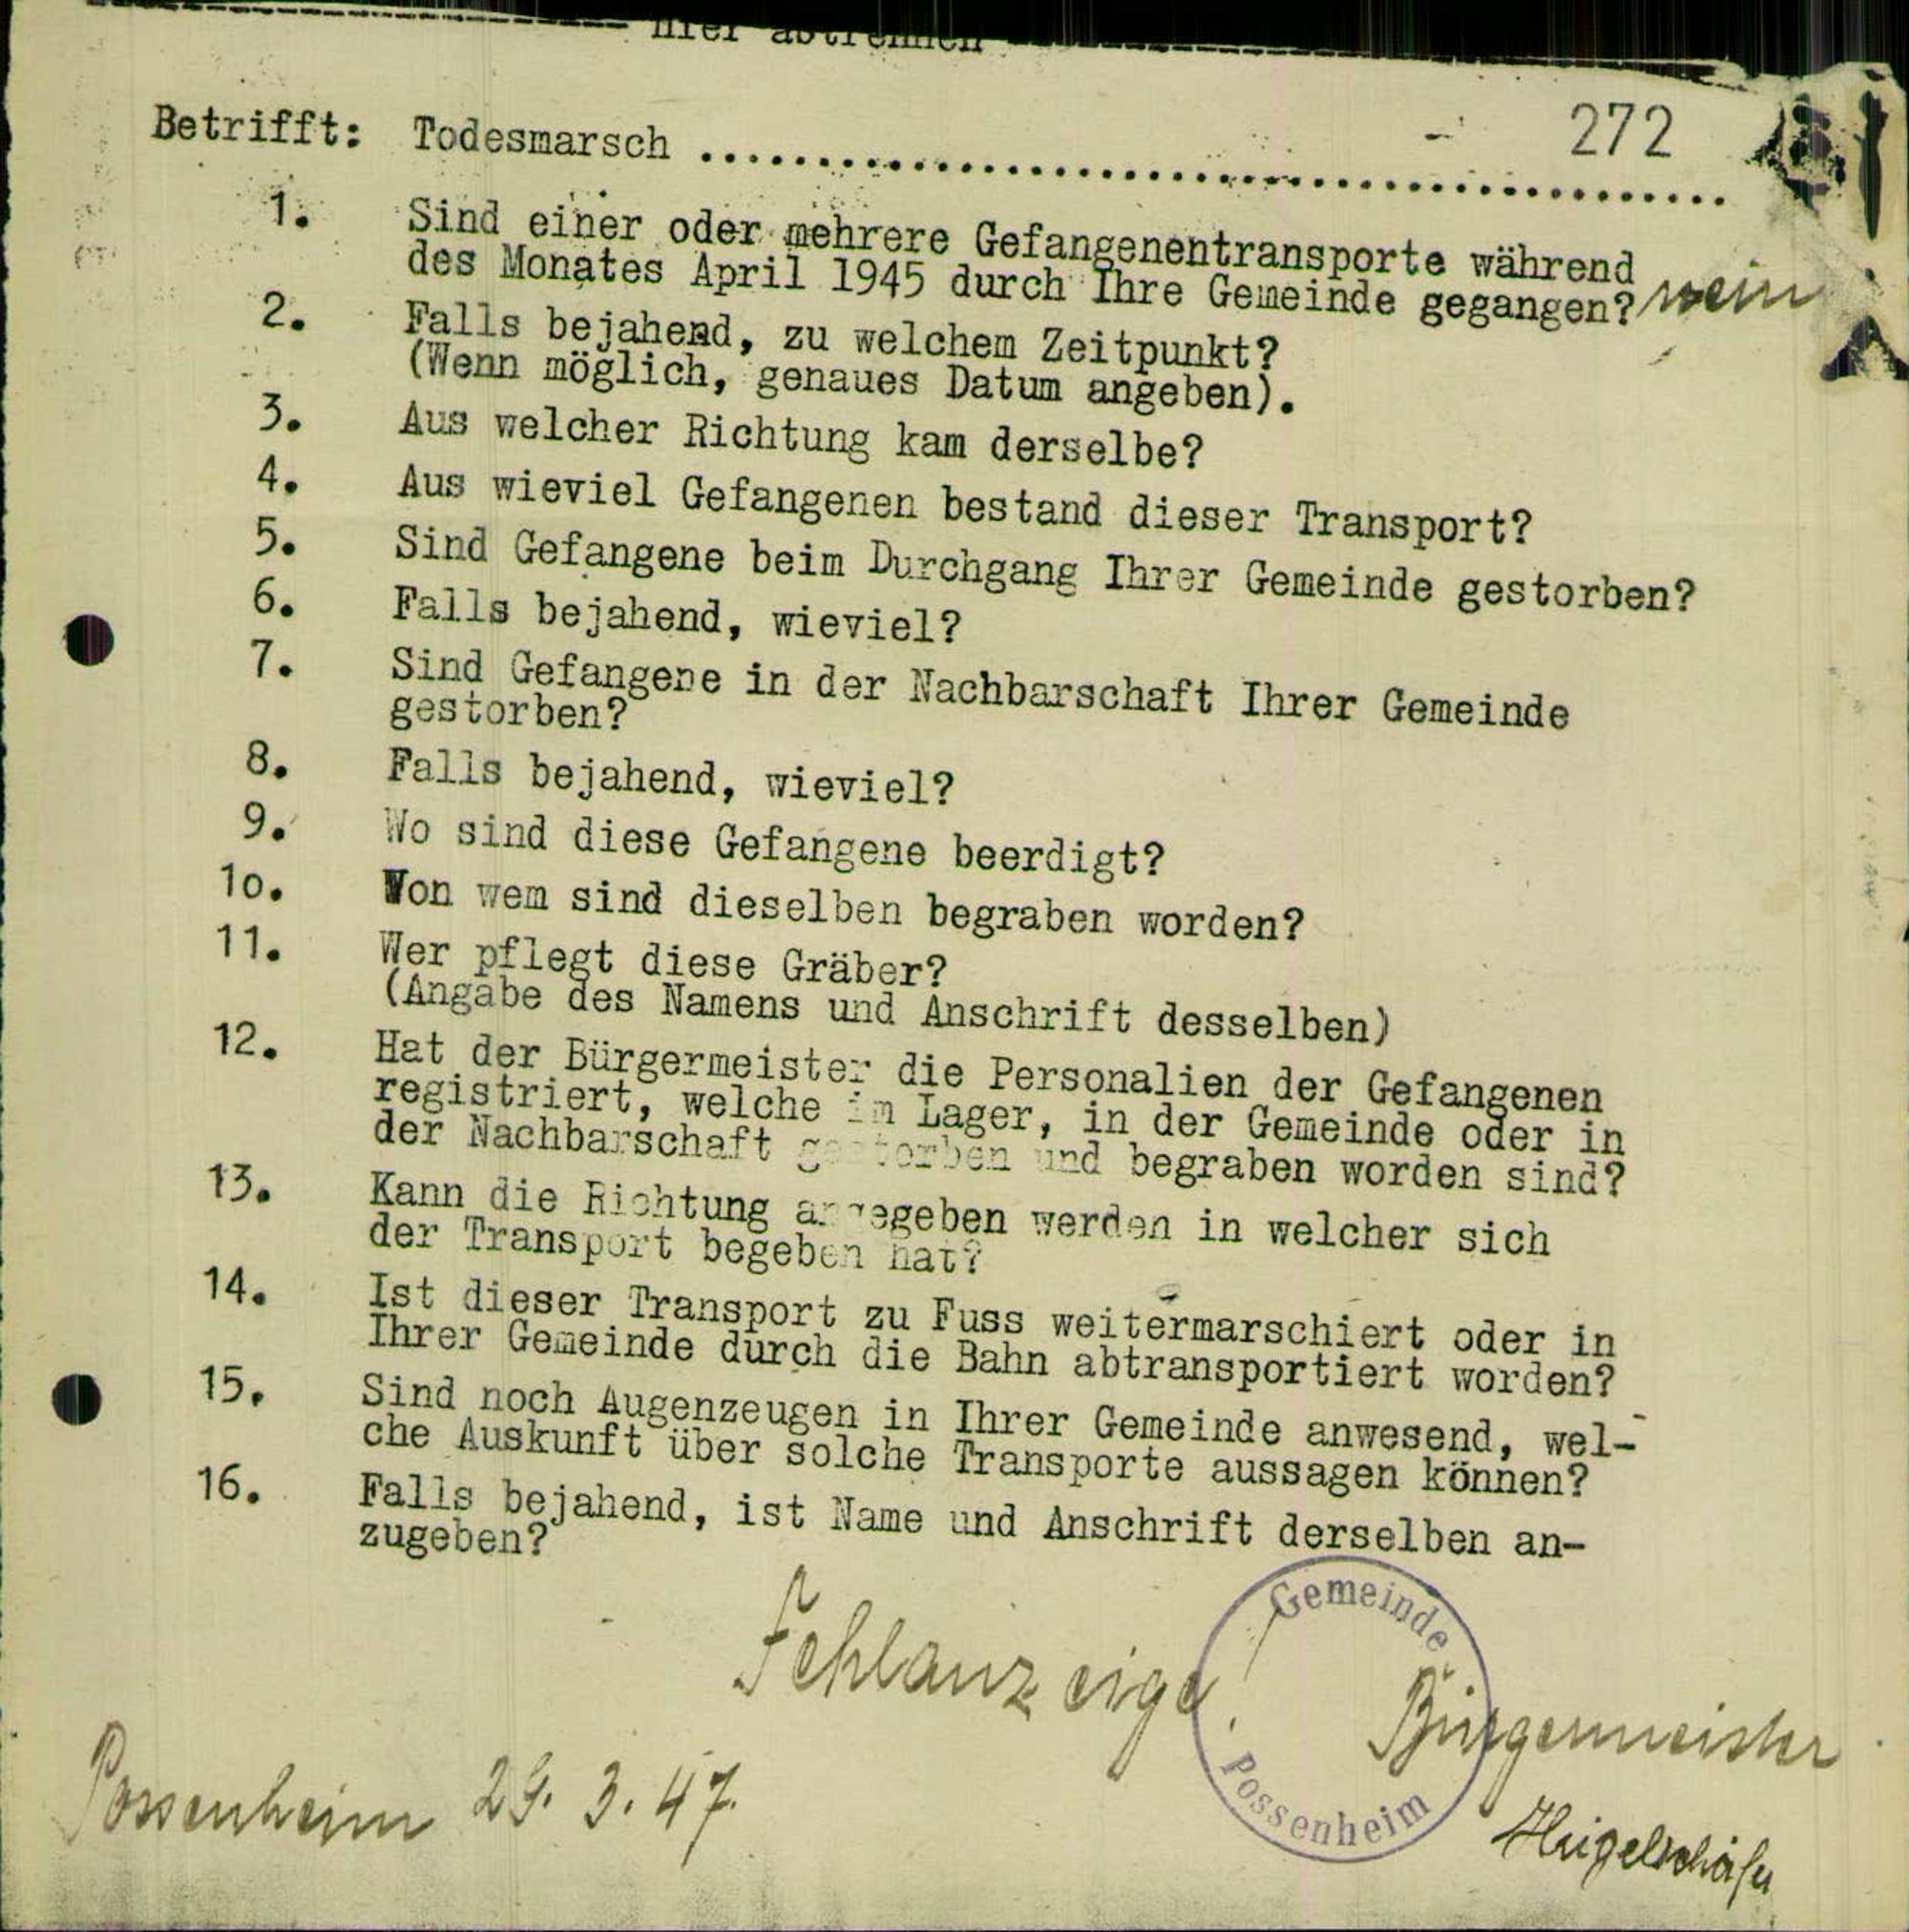 hier abtrennen
272
Betrifft: Todesmarsch ........................................
1. Sind einer oder mehrere Gefangenentransporte während
des Monates April 1945 durch Ihre Gemeinde gegangen? nein
2. Falls bejahend, zu welchem Zeitpunkt?
(Wenn möglich, genaues Datum angeben).
3. Aus welcher Richtung kam derselbe?
4. Aus wieviel Gefangenen bestand dieser Transport?
5. Sind Gefangene beim Durchgang Ihrer Gemeinde gestorben?
6. Falls bejahend, wieviel?
7. Sind Gefangene in der Nachbarschaft Ihrer Gemeinde
gestorben?
8. Falls bejahend, wieviel?
9. Wo sind diese Gefangene beerdigt?
1o. Von wem sind dieselben begraben worden?
11. Wer pflegt diese Gräber?
(Angabe des Namens und Anschrift desselben)
12. Hat der Bürgermeister die Personalien der Gefangenen
registriert, welche im Lager, in der Gemeinde oder in
der Nachbarschaft gestorben und begraben worden sind?
13. Kann die Richtung angegeben werden in welcher sich
der Transport begeben hat?
14. Ist dieser Transport zu Fuss weitermarschiert oder in
Ihrer Gemeinde durch die Bahn abtransportiert worden?
15. Sind noch Augenzeugen in Ihrer Gemeinde anwesend, wel-
che Auskunft über solche Transporte aussagen können?
16. Falls bejahend, ist Name und Anschrift derselben an-
zugeben?
Fehlanzeige!
Gemeinde
Possenheim
Bürgermeister
Possenheim 29. 3. 47.